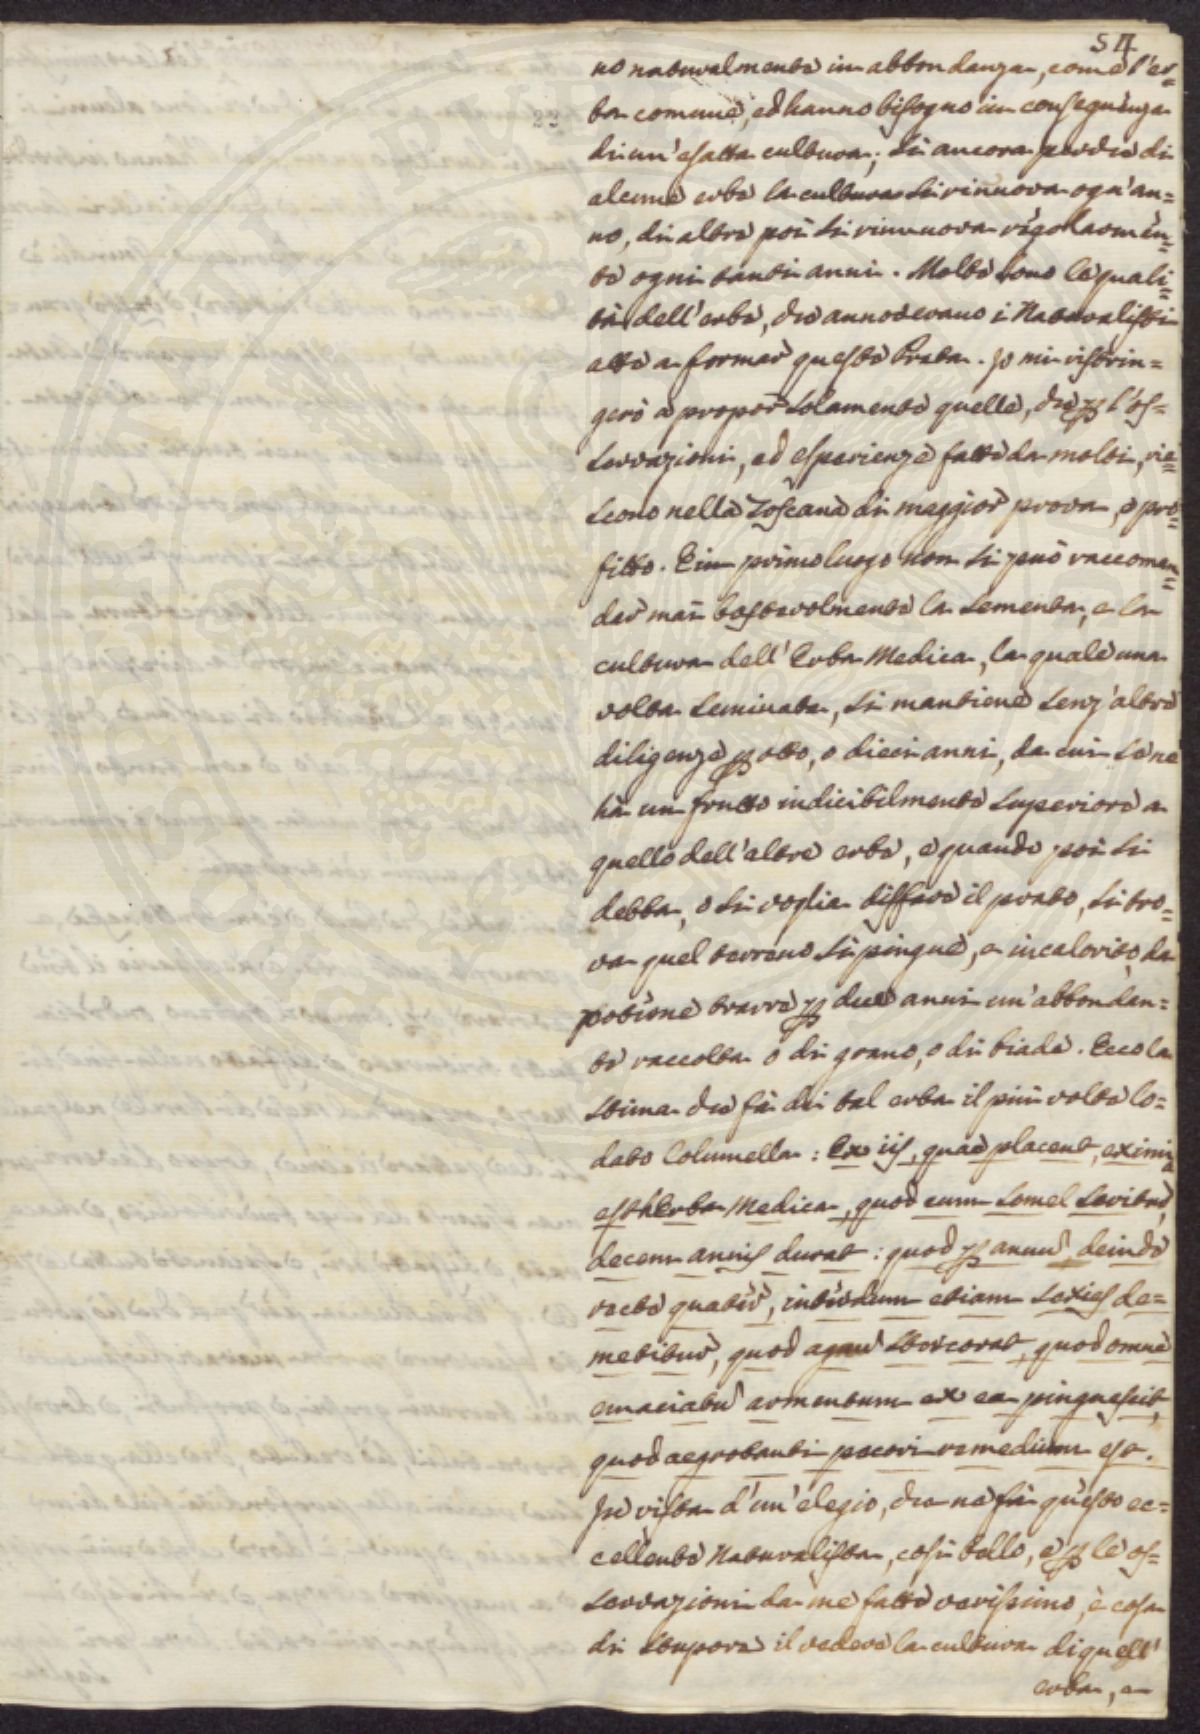 54
no naturalmente in abbondanza, come l'er=
ba comune, ed hanno bisogno in conseguenza
di un'esatta cultura; si ancora perchè di
alcune erbe la cultura si rinnuova ogn'an=
no, di altre poi si rinnuova regolarmen=
te ogni tanti anni. Molte sono le quali=
tà dell'erbe, che annoverano i Naturalisti
atte a formar queste Prata. Io mi ristrin=
gerò a propor solamente quelle, che p l'os=
servazioni, ed esperienze fatte da molti, rie=
scono nella Toscana di maggior prova, e pro=
fitto. E in primo luogo non si può raccoman=
dar mai bastevolmente la sementa, e la
cultura dell'Erba Medica, la quale una
volta seminata, si mantiene senz'altre
diligenze p otto, o dieci anni, da cui se ne
hà un frutto indicibilmente superiore a
quello dell'altre erbe, e quando poi si
debba, o si voglia disfare il prato, si tro=
va quel terreno si pingue, e incalorito, da
potérne trarre p due anni un'abbondan=
te raccolta o di grano, o di biade. Ecco la
stima che fà di tal erba il più volte lo=
dato Columella: Ex iis, quae placent, eximia
est herba Medica, quod cum semel seritur,
decem annis durat: quod p annū deinde
recte quater, interdum etiam sexies de=
metitur, quod agrū stercorat, quod omne
emaciatū armentum ex ea pinguescit,
quod aegrotanti pecori remedium est.
In vista d'un'elogio, che ne fà questo ec=
cellente Naturalista, così bello, e p le os=
servazioni da me fatte verissimo, è cosa
di stupore il vedere la cultura di quest'
erba, e